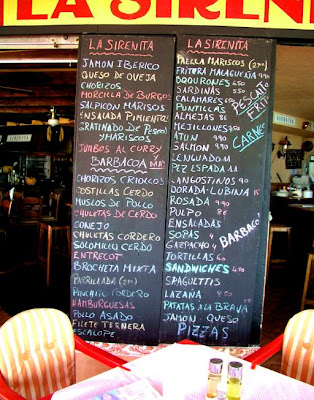 LA SIRENITA
LA SIRENITA
JAMON IBERICO
QUESO DE OVEJA
CHORIZOS
MORCILLA DE BURGOS
SALPICON MARISCOS
ENSALADA PIMIENTA
GRATINADO DE PESCADO
Y MARISCOS
JUMBOS AL CURRY
BARBACOA
CHORIZOS CRIOLLOS
COSTILLAS CERDO
MUSLOS DE POLLO
CHULETAS DE CERDO
CONEJO
CHULETAS CORDERO
SOLOMILLO CERDO
ENTRECOT
BROCHETA MIXTA
PARRILLADA
CORDERO
HAMBURGUESAS
POLLO ASADO
FILETE TERNERA
ESCALOPE
LA SIRENITA
PAELLA MARISCOS
FRITURA MALAGUEÑA
BOQUORONES
SARDINAS
CALAMARES
PUNTILLAS
ALMEJAS
MEJILLONES
ATUN
SALMON
LENGUADO
PEZ ESPADA
LANGOSTINOS
DORADA-LUBINA
ROSADA
PULPO
ENSALADAS
SOPAS
GAZPACHO
TORTILLAS
SANDWICHES
SPAGUETTIS
LAZAÑA
PATATAS A LA BRAVA
JAMON QUESO
PIZZAS
PESCAITO
FRITO
CARNES
BARBACO